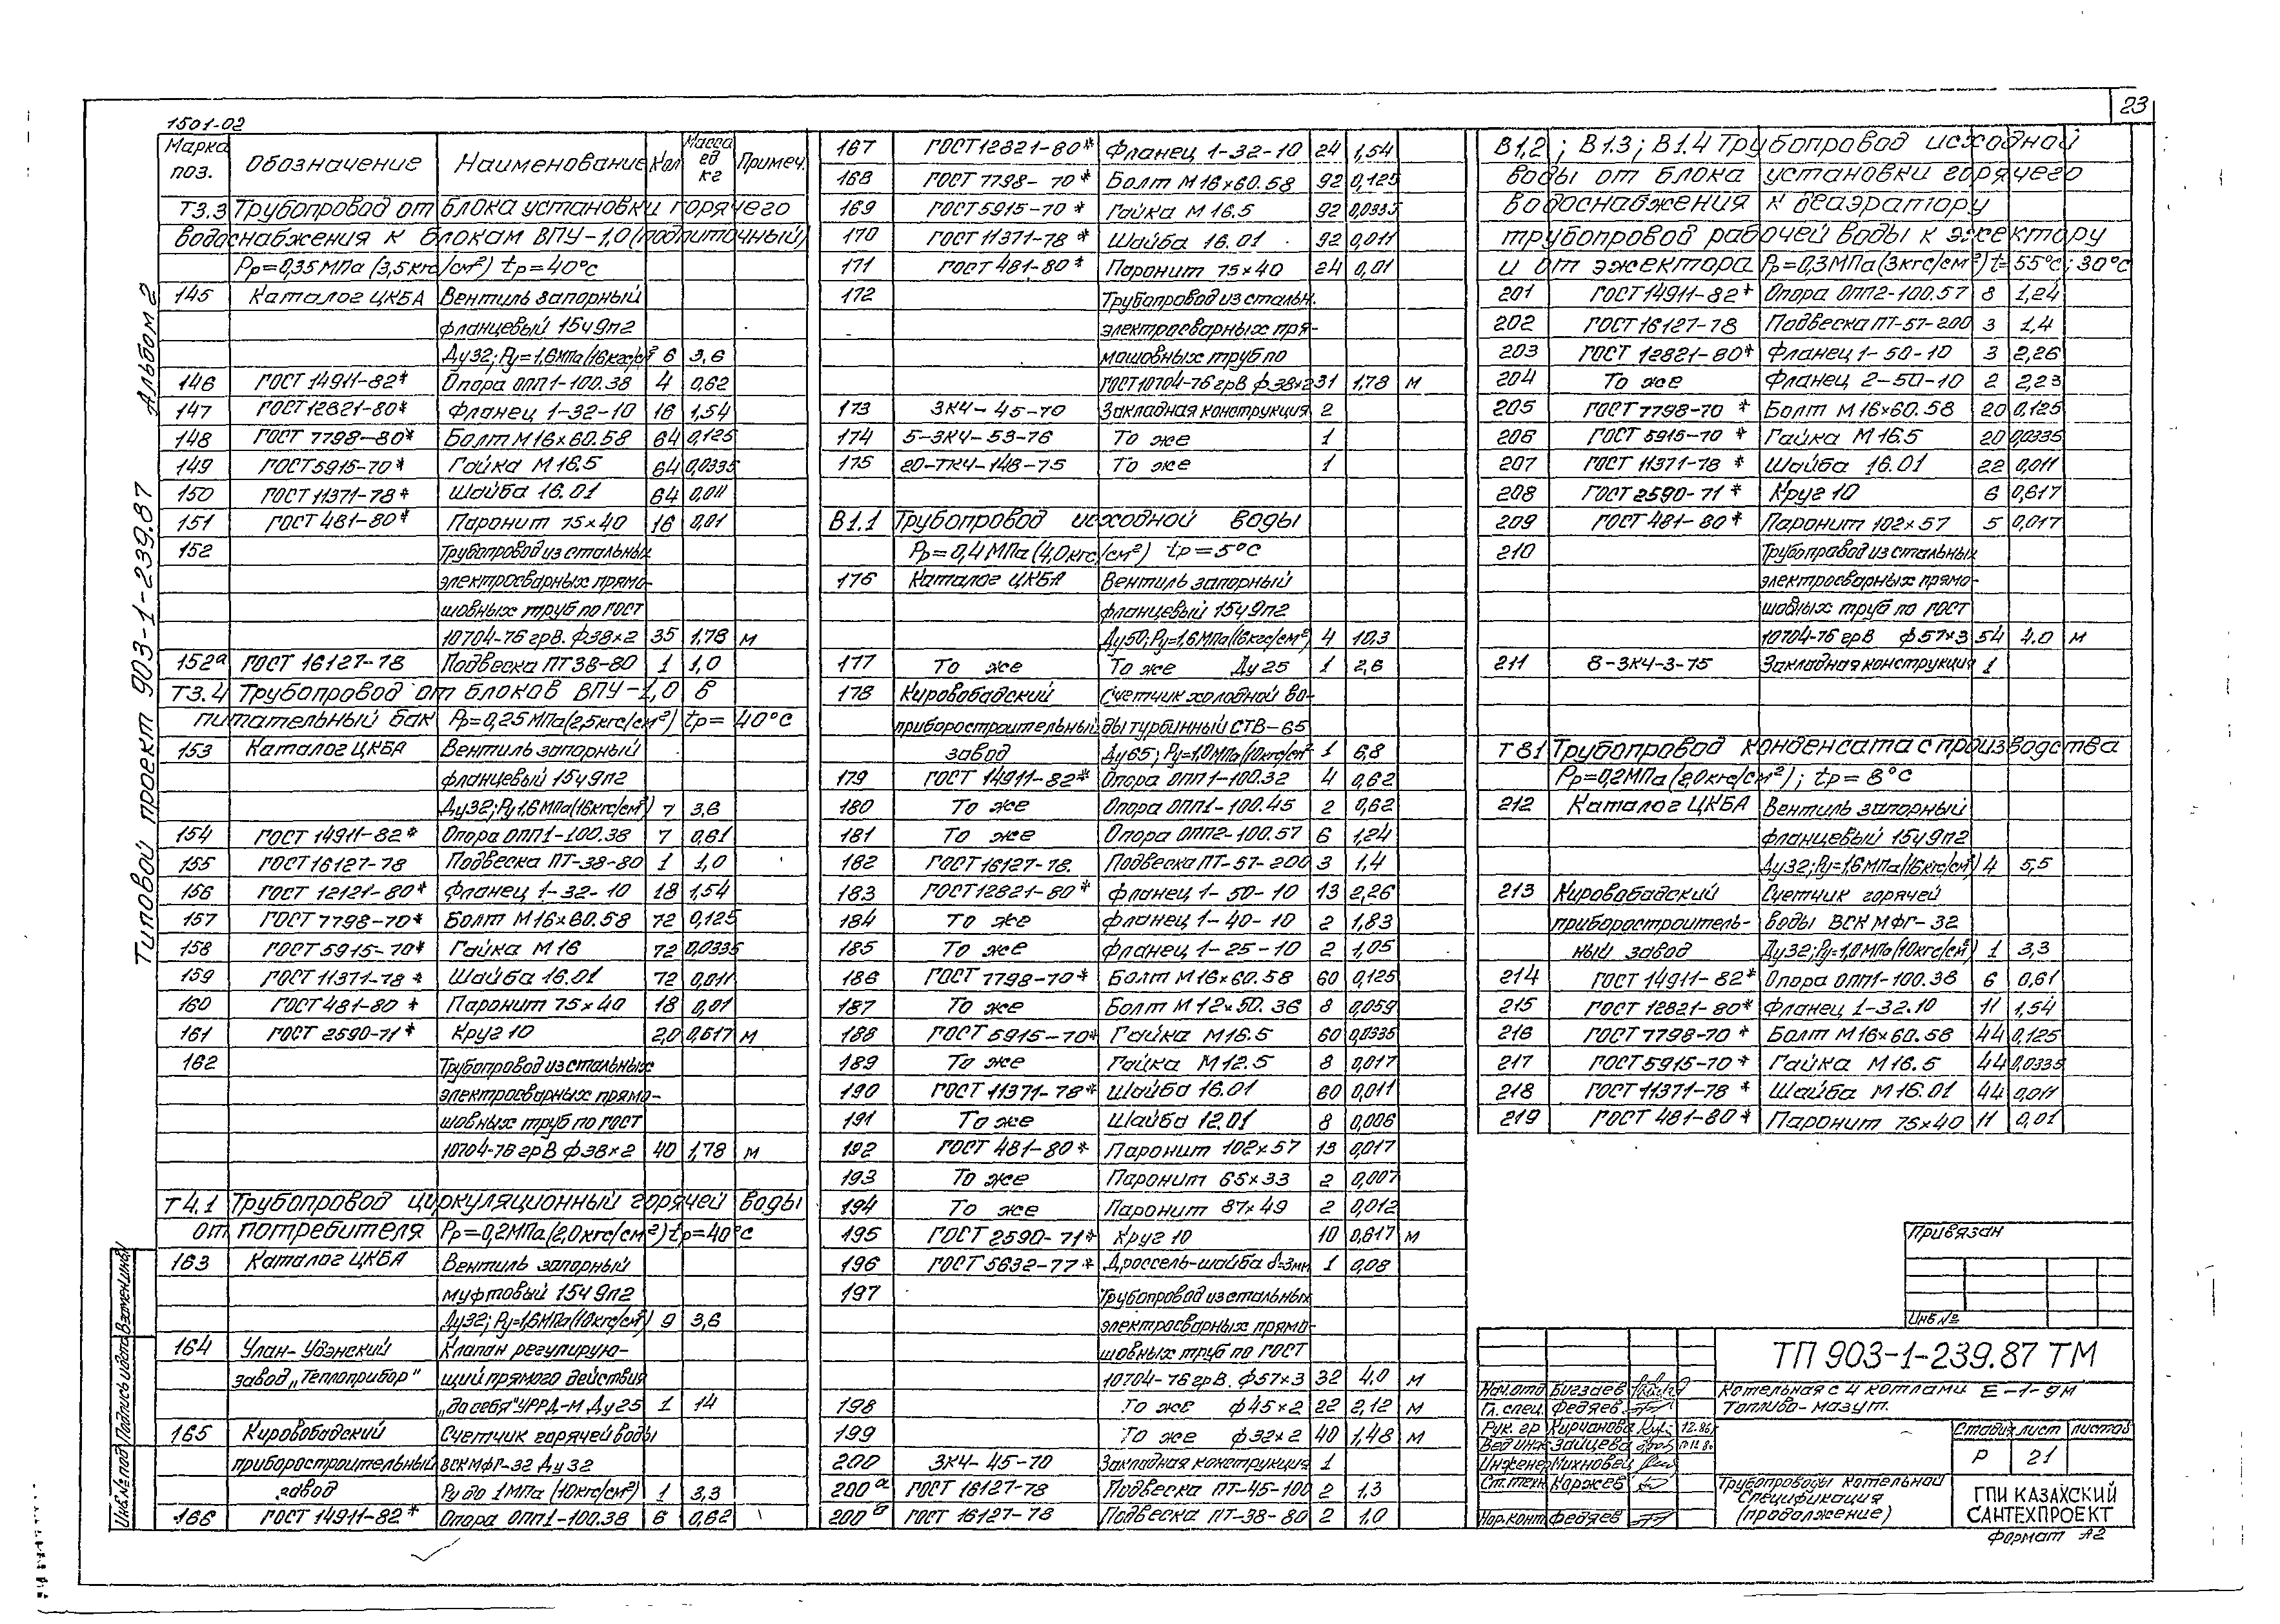 23
1501-02
Альбом 2
Типовой проект 903-1-239.87
Марка поз. Обозначение Наименование Кол Масса ед кг Примеч.
Т3.3 Трубопровод от блока установки горячего
водоснабжения к блокам ВПУ-1,0 (подпиточный)
Рр=0,35МПа (3,5кгс/см²) tр=40°С
145 Каталог ЦКБА Вентиль запорный
фланцевый 15ч9п2
Ду32; Ру=1,6МПа(16кгс/см² 6 3,6
146 ГОСТ 14911-82* Опора ОПП1-100.38 4 0,62
147 ГОСТ12821-80* Фланец 1-32-10 16 1,54
148 ГОСТ 7798-80* Болт М16×60.58 64 0,125
149 ГОСТ5915-70* Гайка М16.5 64 0,0335
150 ГОСТ11371-78* Шайба 16.01 64 0,011
151 ГОСТ 481-80* Паронит 75×40 16 0,01
152 Трубопровод из стальных
электросварных прямо-
шовных труб по ГОСТ
10704-76 грВ. ф38×2 35 1,78 м
152а ГОСТ 16127-78 Подвеска ПТ38-80 1 1,0
Т3.4 Трубопровод от блоков ВПУ-1,0 в
питательный бак Рр=0,25МПа(2,5кгс/см²) tр= 40°С
153 Каталог ЦКБА Вентиль запорный
фланцевый 15ч9п2
Ду32;Ру1,6МПа(16кгс/см²) 7 3,6
154 ГОСТ 14911-82* Опора ОПП1-100.38 7 0,61
155 ГОСТ16127-78 Подвеска ПТ-38-80 1 1,0
156 ГОСТ 12121-80* Фланец 1-32-10 18 1,54
157 ГОСТ7798-70* Болт М16×60.58 72 0,125
158 ГОСТ5915-70* Гайка М16 72 0,0335
159 ГОСТ11371-78* Шайба 16.01 72 0,011
160 ГОСТ481-80* Паронит 75×40 18 0,01
161 ГОСТ 2590-71* Круг 10 2,0 0,617 м
162 Трубопровод из стальных
электросварных прямо-
шовных труб по ГОСТ
10704-76 грВ ф38×2 40 1,78 м
Т4.1 Трубопровод циркуляционный горячей воды
от потребителя Рр=0,2МПа(2,0кгс/см²) tр=40°С
163 Каталог ЦКБА Вентиль запорный
муфтовый 15ч9п2
Ду32; Ру=1,6МПа(10кгс/см²) 9 3,6
164 Улан-Удэнский Клапан регулирую-
завод „Теплоприбор" щий прямого действия
„До себя" УРРД-М Ду25 1 14
165 Кировобадский Счетчик горячей воды
приборостроительный ВСКМФГ-32 Ду32
завод Ру до 1МПа (10кгс/см²) 1 3,3
166 ГОСТ 14911-82* Опора ОПП1-100.38 6 0,62
167 ГОСТ12821-80* Фланец 1-32-10 24 1,54
168 ГОСТ 7798-70* Болт М16×60.58 92 0,125
169 ГОСТ5915-70* Гайка М16.5 92 0,0335
170 ГОСТ 11371-78* Шайба 16.01 92 0,011
171 ГОСТ 481-80* Паронит 75×40 24 0,01
172 Трубопровод из стальн.
электросварных пря-
мошовных труб по
ГОСТ10704-76 грВ ф38×2 31 1,78 м
173 ЗК4-45-70 Закладная конструкция 2
174 5-ЗК4-53-76 То же 1
175 20-ТК4-148-75 То же 1
В1.1 Трубопровод исходной воды
Рр=0,4МПа(4,0кгс/см²) tр=5°С
176 Каталог ЦКБА Вентиль запорный
фланцевый 15ч9п2
Ду50;Ру=1,6МПа(16кгс/см²) 4 10,3
177 То же То же Ду25 1 2,6
178 Кировобадский Счетчик холодной во-
приборостроительный ды турбинный СТВ-65
завод Ду65; Ру=1,0МПа(10кгс/см² 1 6,8
179 ГОСТ 14911-82* Опора ОПП1-100.32 4 0,62
180 То же Опора ОПП1-100.45 2 0,62
181 То же Опора ОПП2-100.57 6 1,24
182 ГОСТ16127-78. Подвеска ПТ-57-200 3 1,4
183 ГОСТ12821-80* Фланец 1-50-10 13 2,26
184 То же Фланец 1-40-10 2 1,83
185 То же Фланец 1-25-10 2 1,05
186 ГОСТ 7798-70* Болт М16×60.58 60 0,125
187 То же Болт М12×50.36 8 0,059
188 ГОСТ 5915-70* Гайка М16.5 60 0,0335
189 То же Гайка М12.5 8 0,017
190 ГОСТ 11371-78* Шайба 16.01 60 0,011
191 То же Шайба 12.01 8 0,006
192 ГОСТ 481-80* Паронит 102×57 13 0,017
193 То же Паронит 65×33 2 0,007
194 То же Паронит 87×49 2 0,012
195 ГОСТ 2590-71* Круг 10 10 0,617 м
196 ГОСТ 5632-77* Дроссель-шайба δ=3мм 1 0,08
197 Трубопровод из стальных
электросварных прямо-
шовных труб по ГОСТ
10704-76 грВ. ф57×3 32 4,0 м
198 То же ф45×2 22 2,12 м
199 То же ф32×2 40 1,48 м
200 ЗК4-45-70 Закладная конструкция 1
200а ГОСТ 16127-78 Подвеска ПТ-45-100 2 1,3
200б ГОСТ 16127-78 Подвеска ПТ-38-80 2 1.0
В1,2; В1.3; В1.4 Трубопровод исходной
воды от блока установки горячего
водоснабжения к деаэратору
трубопровод рабочей воды к эжектору
и от эжектора Рр=0,3МПа(3кгс/см²) t=55°С; 30°С
201 ГОСТ14911-82* Опора ОПП2-100.57 8 1,24
202 ГОСТ16127-78 Подвеска ПТ-57-200 3 1,4
203 ГОСТ 12821-80* Фланец 1-50-10 3 2,26
204 То же Фланец 2-50-10 2 2,23
205 ГОСТ7798-70* Болт М16×60.58 20 0,125
206 ГОСТ 5915-70* Гайка М16.5 20 0,0335
207 ГОСТ 11371-78* Шайба 16.01 22 0,011
208 ГОСТ2590-71* Круг 10 6 0,617
209 ГОСТ 481-80* Паронит 102×57 5 0,017
210 Трубопровод из стальных
электросварных прямо-
шовных труб по ГОСТ
10704-76 грВ ф57×3 54 4,0 м
211 8-ЗК4-3-75 Закладная конструкция 1
Т81 Трубопровод конденсата с производства
Рр=0,2МПа(2,0кгс/см²); tр= 8°С
212 Каталог ЦКБА Вентиль запорный
фланцевый 15ч9п2
Ду32;Ру=1,6МПа(16кгс/см²) 4 5,5
213 Кировобадский Счетчик горячей
приборостроитель- воды ВСКМФГ-32
ный завод Ду32;Ру=1,0МПа(10кгс/см²) 1 3,3
214 ГОСТ 14911-82* Опора ОПП1-100.38 6 0,61
215 ГОСТ 12821-80* Фланец 1-32.10 11 1,54
216 ГОСТ 7798-70* Болт М16×60.58 44 0,125
217 ГОСТ5915-70* Гайка М16.5 44 0,0335
218 ГОСТ11371-78* Шайба М16.01 44 0,011
219 ГОСТ 481-80* Паронит 75×40 11 0,01
Привязан
Инв №
ТП 903-1-239.87 ТМ
Нач.отд Бигзаев
Гл. спец. Федяев
Рук. гр Кирчанова 12.86
Вед инж Зайцева
Инженер Михновец
Ст.техн Коржев
Нор.конт Федяев
Котельная с 4 котлами Е-1-9М
Топливо-мазут.
Стадия лист листов
Р 21
Трубопроводы котельной
Спецификация
(продолжение)
ГПИ КАЗАХСКИЙ
САНТЕХПРОЕКТ
Формат А2
Инв.№ подл Подпись и дата Взамен инв.№